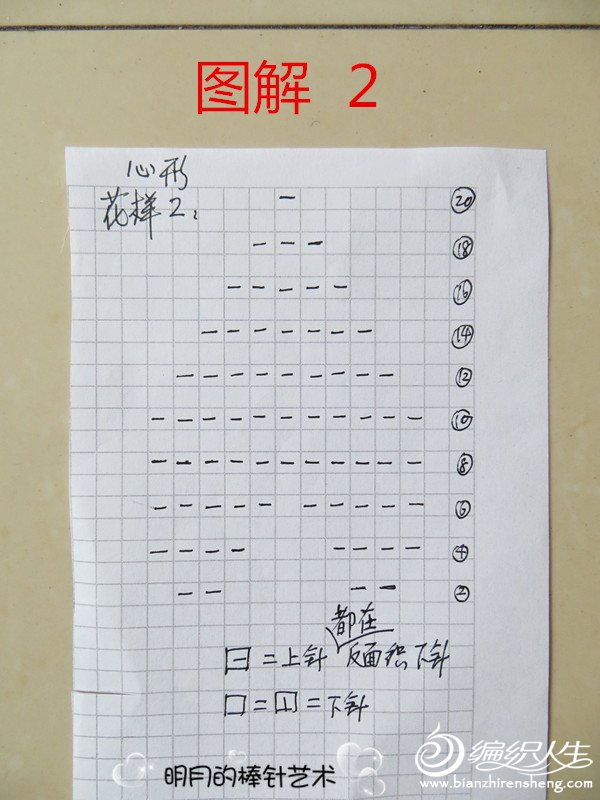 图解 2
心形
花样2:
— ⑳
— — — ⑱
— — — — — ⑯
— — — — — — — ⑭
— — — — — — — — — ⑫
— — — — — — — — — — — ⑩
— — — — — — — — — — — ⑧
— — — — — — — — — — ⑥
— — — — — — — — ④
— — — — ②
都在
⊟ = 上针 反面织下针
□ = ｜ = 下针
明月的棒针艺术
编织人生
www.bianzhirensheng.com